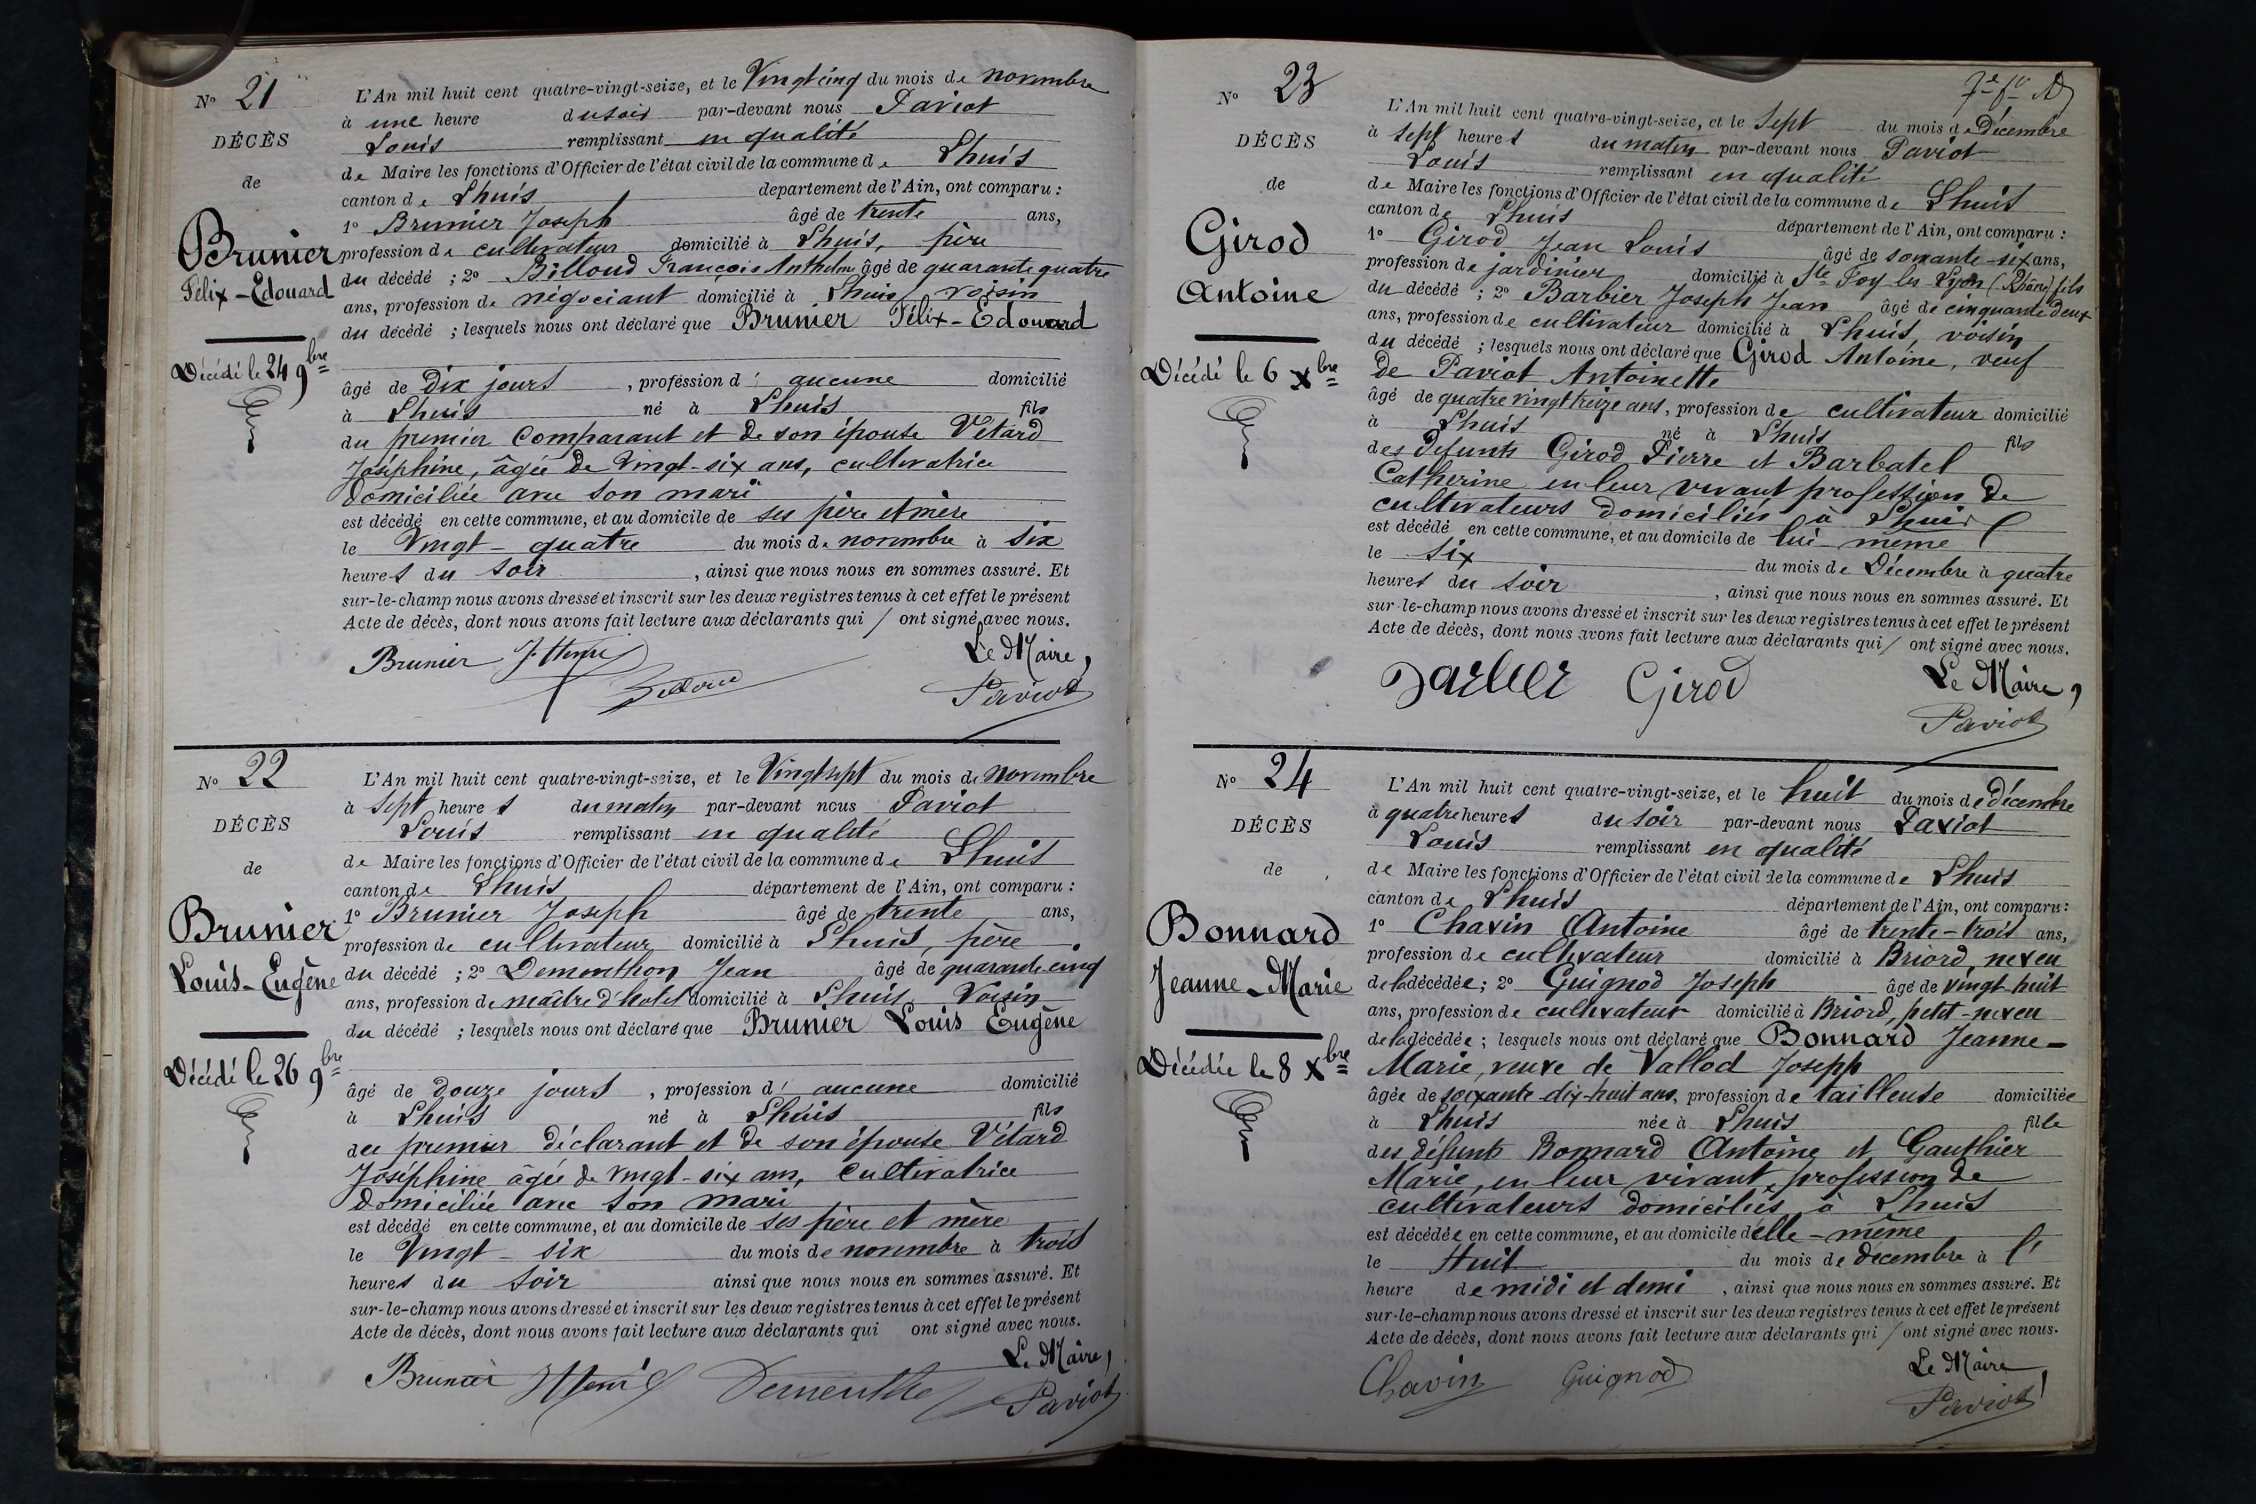 N° 21
DÉCÈS
de
Brunier
Félix-Edouard
Décédé le 24 9bre
L'An mil huit cent quatre-vingt-seize, et le Vingt cinq du mois de novembre
à une heure du soir par-devant nous Paviot
Louis remplissant en qualité
de Maire les fonctions d'Officier de l'état civil de la commune de Lhuis
canton de Lhuis département de l'Ain, ont comparu :
1° Brunier Joseph âgé de trente ans,
profession de cultivateur domicilié à Lhuis, père
du décédé ; 2° Billoud François Anthelme âgé de quarante quatre
ans, profession de négociant domicilié à Lhuis, voisin
du décédé ; lesquels nous ont déclaré que Brunier Félix-Edouard
âgé de dix jours, profession d' aucune domicilié
à Lhuis né à Lhuis fils
du premier Comparant et de son épouse Vétard
Joséphine, âgée de Vingt-six ans, cultivatrice
domiciliée avec son mari
est décédé en cette commune, et au domicile de ses père et mère
le Vingt-quatre du mois de novembre à six
heures du soir, ainsi que nous nous en sommes assuré. Et
sur-le-champ nous avons dressé et inscrit sur les deux registres tenus à cet effet le présent
Acte de décès, dont nous avons fait lecture aux déclarants qui / ont signé avec nous.
Le Maire,
Brunier Paviot
N° 22
DÉCÈS
de
Brunier
Louis-Eugène
Décédé le 26 9bre
L'An mil huit cent quatre-vingt-seize, et le Vingt sept du mois de novembre
à sept heures du matin par-devant nous Paviot
Louis remplissant en qualité
de Maire les fonctions d'Officier de l'état civil de la commune de Lhuis
canton de Lhuis département de l'Ain, ont comparu :
1° Brunier Joseph âgé de trente ans,
profession de cultivateur domicilié à Lhuis, père
du décédé ; 2° Demonthon Jean âgé de quarante cinq
ans, profession de maître d'hotel domicilié à Lhuis Voisin
du décédé ; lesquels nous ont déclaré que Brunier Louis Eugène
âgé de douze jours, profession d' aucune domicilié
à Lhuis né à Lhuis fils
du premier déclarant et de son épouse Vétard
Joséphine âgée de vingt-six ans, Cultivatrice
domiciliée avec son mari
est décédé en cette commune, et au domicile de ses père et mère
le Vingt-six du mois de novembre à trois
heures du soir ainsi que nous nous en sommes assuré. Et
sur-le-champ nous avons dressé et inscrit sur les deux registres tenus à cet effet le présent
Acte de décès, dont nous avons fait lecture aux déclarants qui ont signé avec nous.
Le Maire,
Brunier Paviot
N° 23
DÉCÈS
de
Girod
Antoine
Décédé le 6 Xbre
L'An mil huit cent quatre-vingt-seize, et le Sept du mois de Décembre
à sept heures du matin par-devant nous Paviot
Louis remplissant en qualité
de Maire les fonctions d'Officier de l'état civil de la commune de Lhuis
canton de Lhuis département de l'Ain, ont comparu :
1° Girod Jean Louis âgé de soixante-six ans,
profession de jardinier domicilié à Ste Foy les Lyon (Rhône) fils
du décédé ; 2° Barbier Joseph Jean âgé de cinquante deux
ans, profession de cultivateur domicilié à Lhuis, voisin
du décédé ; lesquels nous ont déclaré que Girod Antoine, veuf
de Paviot Antoinette
âgé de quatre vingt treize ans, profession de cultivateur domicilié
à Lhuis né à Lhuis fils
des défunts Girod Pierre et Barbatel
Catherine en leur vivant profession de
cultivateurs domiciliés à Lhuis
est décédé en cette commune, et au domicile de lui-même
le six du mois de Décembre à quatre
heures du soir, ainsi que nous nous en sommes assuré. Et
sur-le-champ nous avons dressé et inscrit sur les deux registres tenus à cet effet le présent
Acte de décès, dont nous avons fait lecture aux déclarants qui / ont signé avec nous.
Le Maire,
Barbier Girod Paviot
N° 24
DÉCÈS
de
Bonnard
Jeanne-Marie
Décédée le 8 Xbre
L'An mil huit cent quatre-vingt-seize, et le huit du mois de décembre
à quatre heures du soir par-devant nous Paviot
Louis remplissant en qualité
de Maire les fonctions d'Officier de l'état civil de la commune de Lhuis
canton de Lhuis département de l'Ain, ont comparu :
1° Chavin Antoine âgé de trente-trois ans,
profession de cultivateur domicilié à Briord, neveu
de la décédée ; 2° Guignod Joseph âgé de vingt huit
ans, profession de cultivateur domicilié à Briord, petit-neveu
de la décédée ; lesquels nous ont déclaré que Bonnard Jeanne-
Marie, veuve de Vallod Joseph
âgée de soixante-dix-huit ans, profession de tailleuse domiciliée
à Lhuis née à Lhuis fille
des défunts Bonnard Antoine et Gauthier
Marie, en leur vivant, profession de
cultivateurs domiciliés à Lhuis
est décédée en cette commune, et au domicile d'elle-même
le Huit du mois de décembre à l'
heure de midi et demi, ainsi que nous nous en sommes assuré. Et
sur-le-champ nous avons dressé et inscrit sur les deux registres tenus à cet effet le présent
Acte de décès, dont nous avons fait lecture aux déclarants qui / ont signé avec nous.
Le Maire
Chavin Guignod Paviot